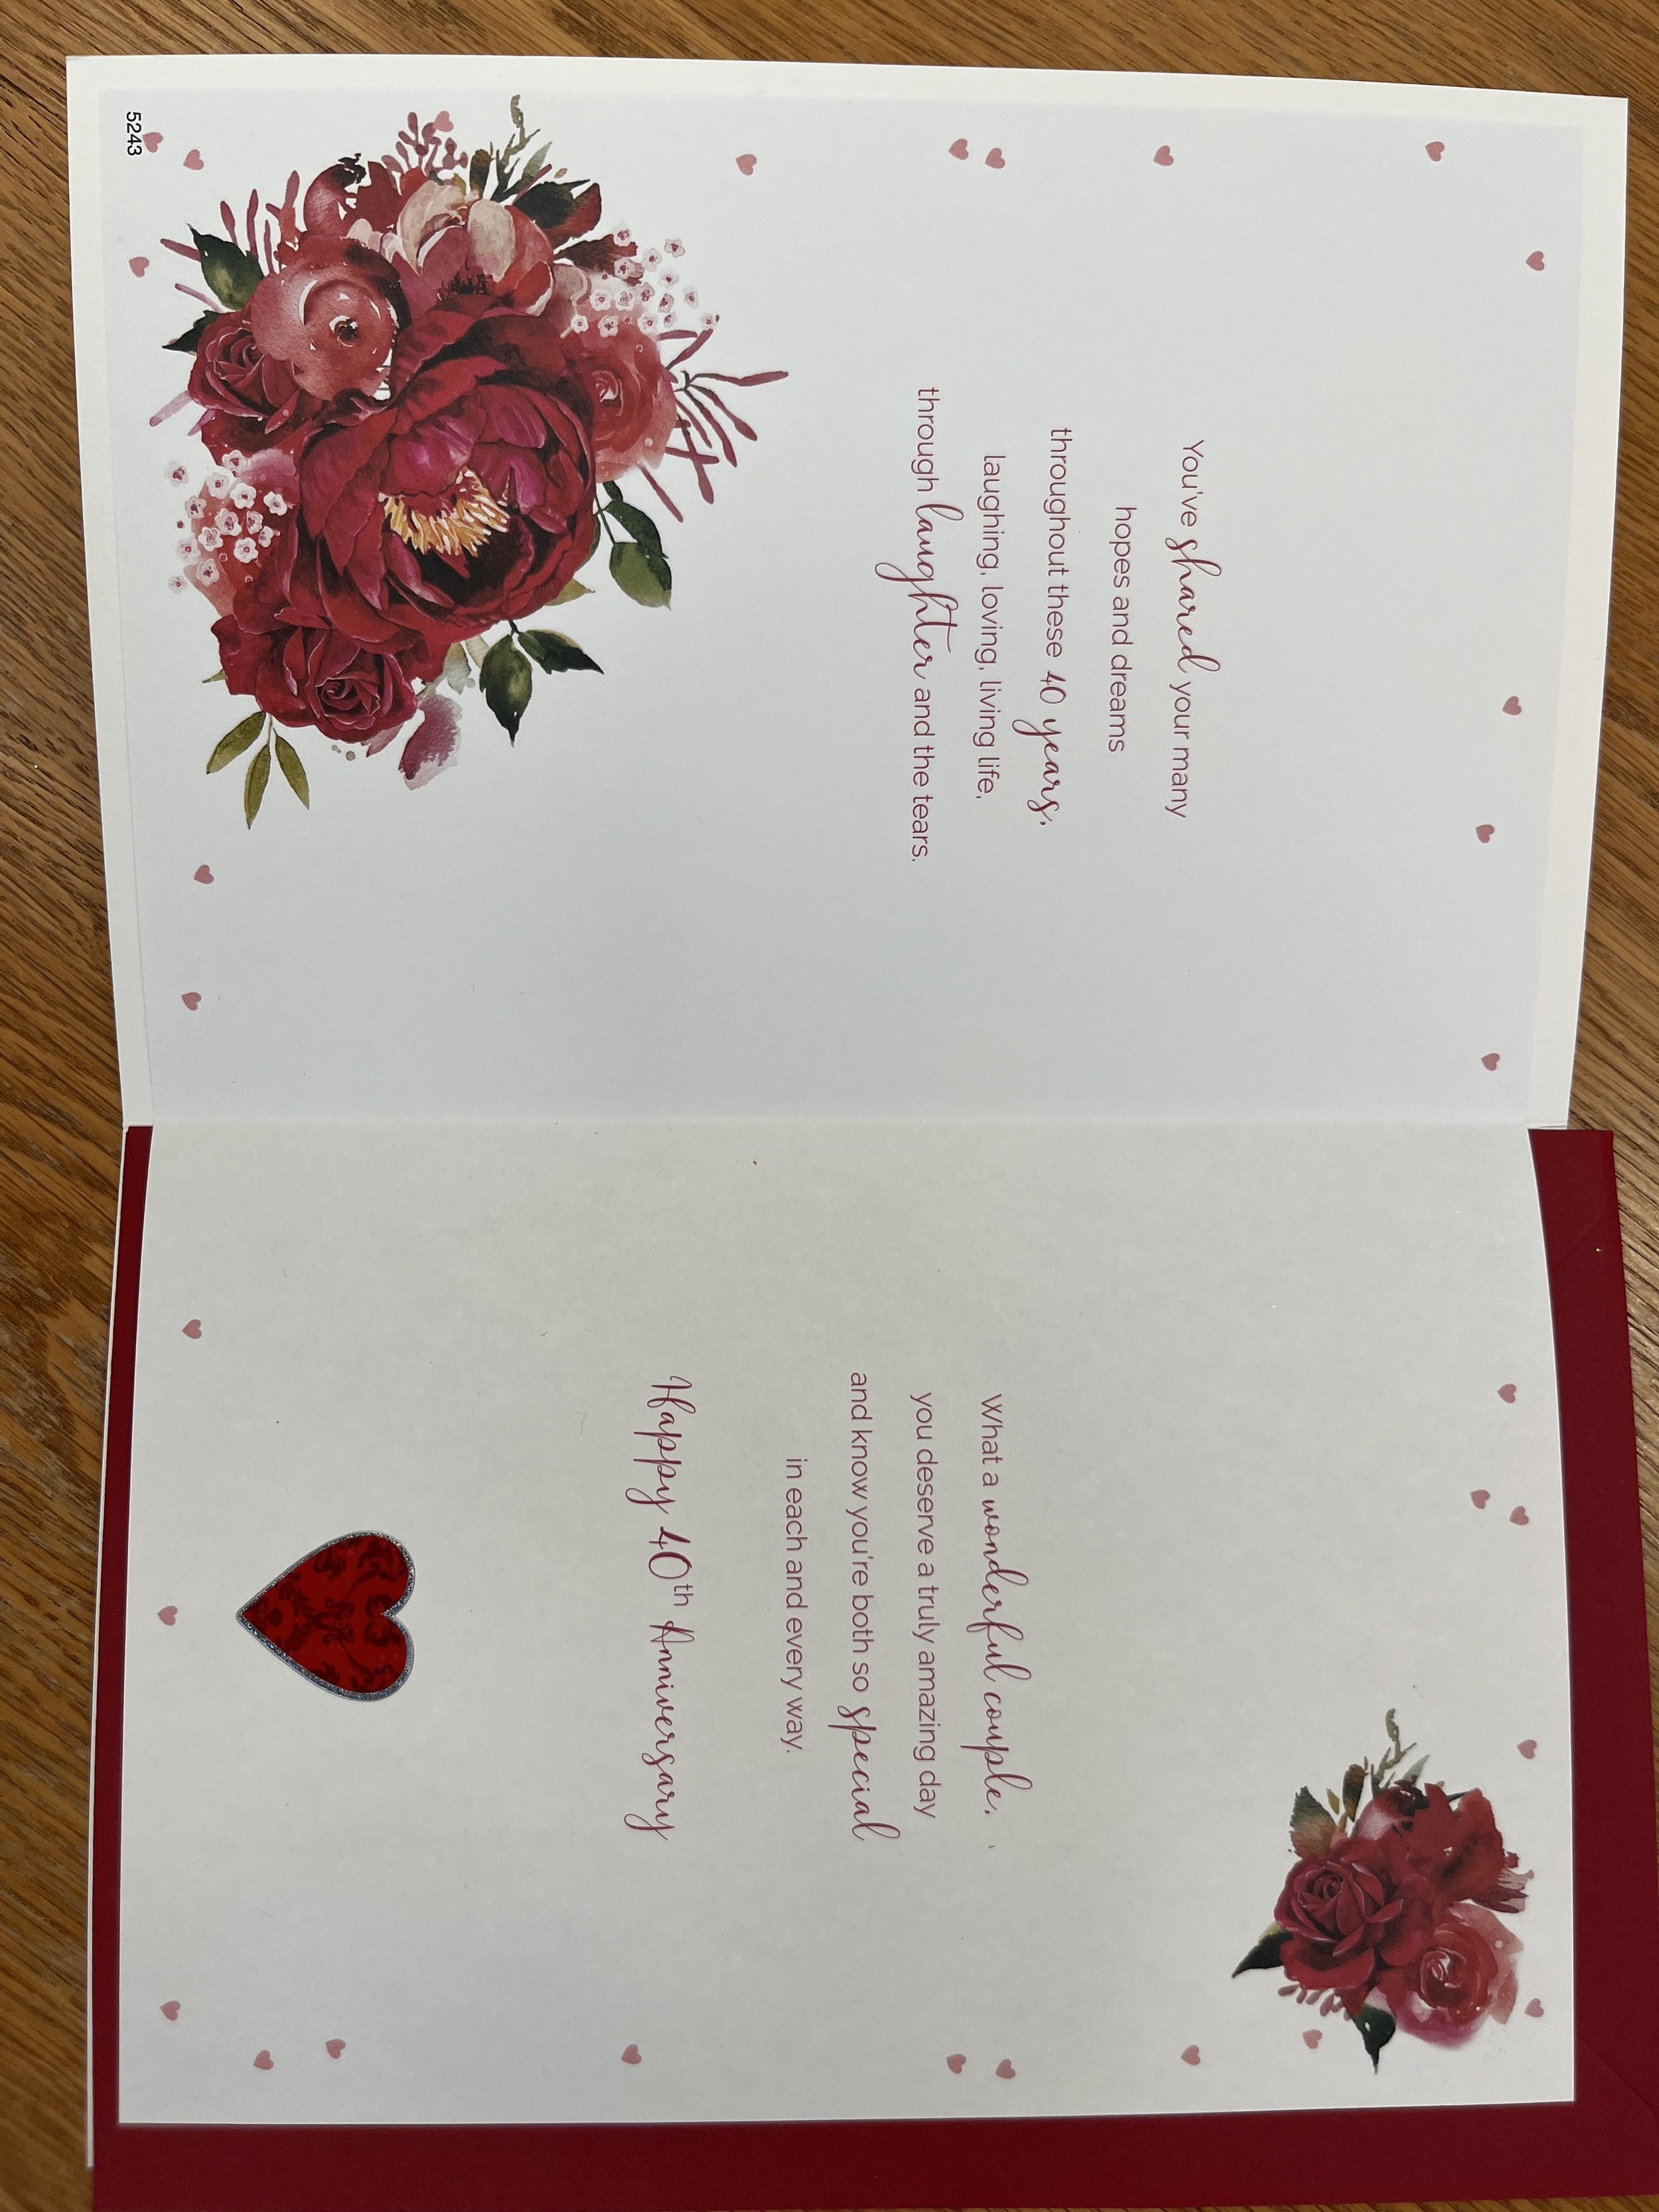 You've shared your many
hopes and dreams
throughout these 40 years,
laughing, loving, living life,
through laughter and the tears.
5243
What a wonderful couple,
you deserve a truly amazing day
and know you're both so special
in each and every way.
Happy 40th Anniversary